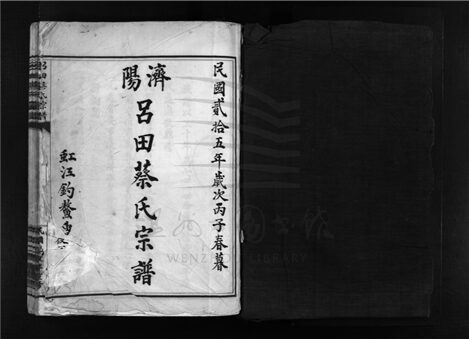 民國貳拾五年歲次丙子春暮
濟陽
呂田蔡氏宗譜
虹江釣鰲
WENZHOU LIBRARY